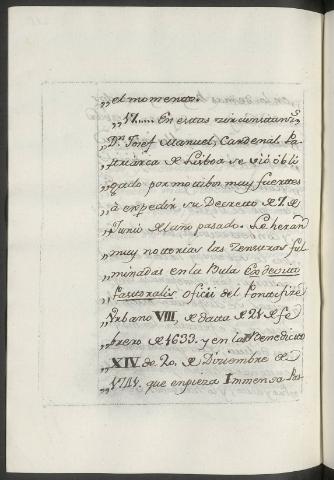 „el momento.
„VI..... En estas circunstancias
„Dn. Josef Manuel, Cardenal Pa-
„triarca de Lisboa se vió obli
„gado por motibos muy fuertes
„à expedir su Decreto de 7. de
„Junio del año pasado. Le heran
„muy notorias las Zensuras ful
„minadas en la Bula Ex devito
„Pastoralis oficii del Pontifize
„Urbano VIII, de data de 21 de fe
„brero de 1633. y en la de Benedicto
„XIV de 20. de Diziembre de
„1741. que empieza Immensa Pas